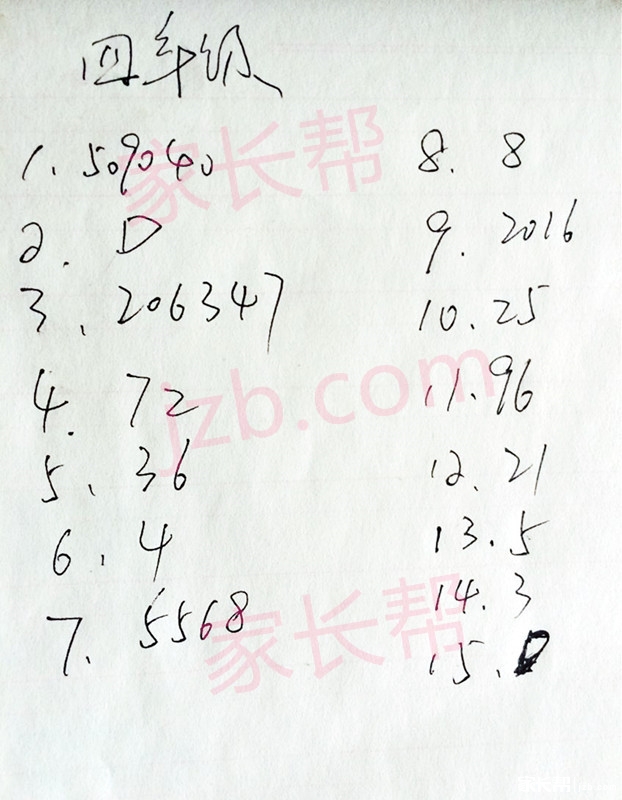 四年级
1. 509040
2. D
3. 206347
4. 72
5. 36
6. 4
7. 5568
8. 8
9. 2016
10. 25
11. 96
12. 21
13. 5
14. 3
15. D
家长帮
jzb.com
家长帮